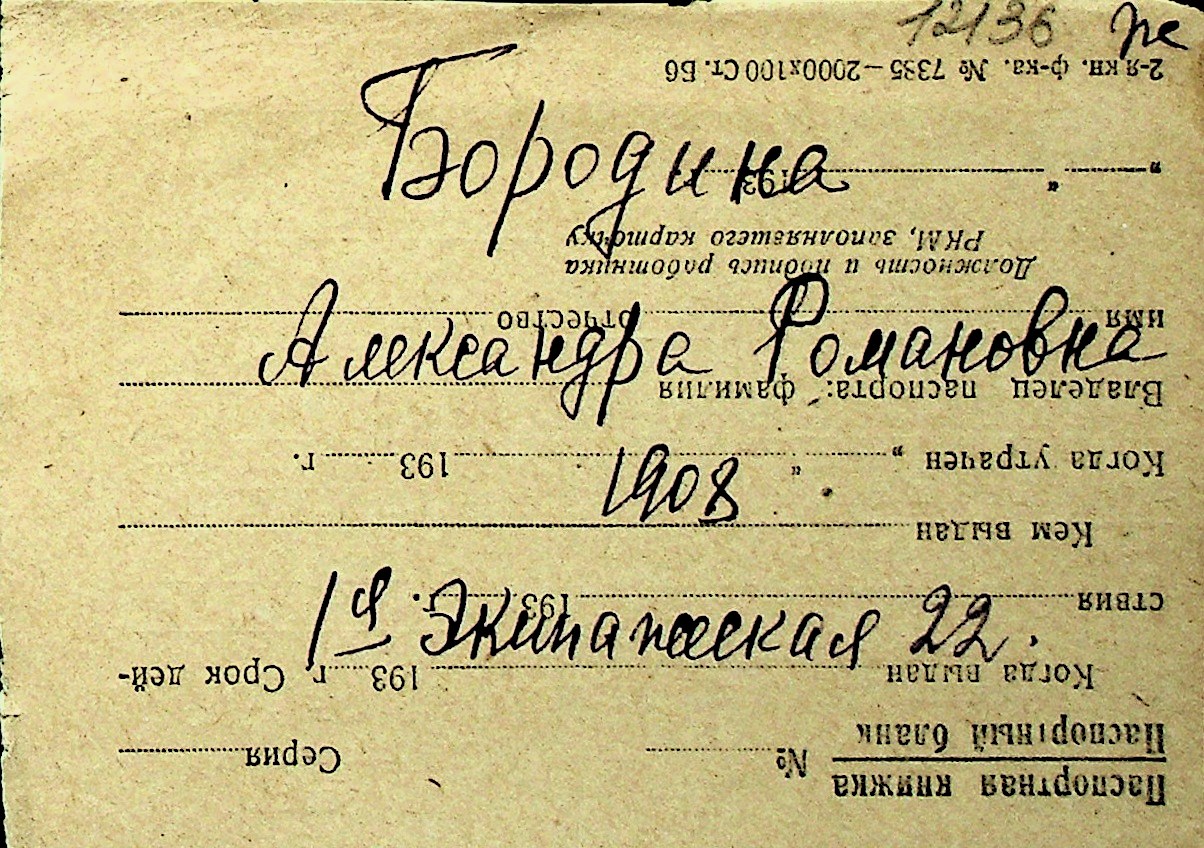 12136 же
Бородина
Александра Романовна
1908
1я Экипажеская 22.
Паспортная книжка
Паспортный бланк № Серия
Когда выдан 193 г. Срок дей-
ствия 193 г.
Кем выдан
Когда утрачен „ “ 193 г.
Владелец паспорта: фамилия
имя отчество
Должность и подпись работника
РКМ, заполнявшего карточку
„ “ 193 г.
2-я кн. ф-ка. № 7335—2000х100 Ст. Б6